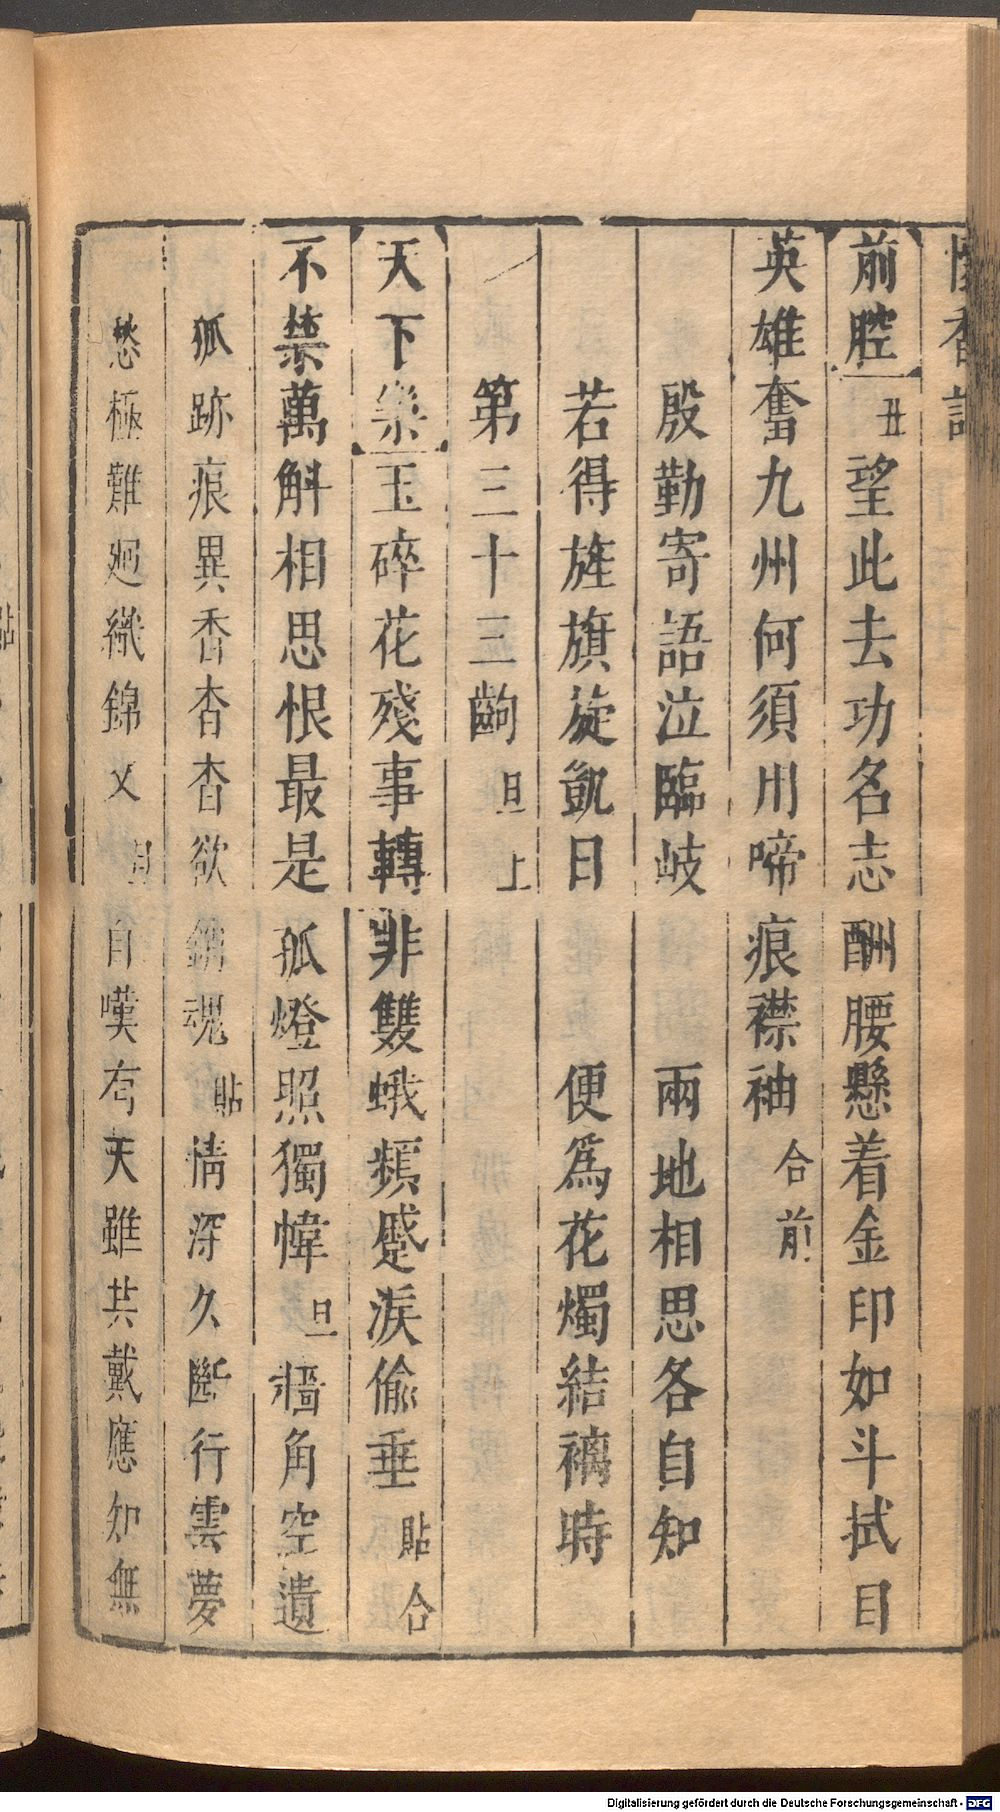 懷香記
前腔 丑 望此去功名志酬腰懸着金印如斗拭目
英雄奮九州何須用啼痕襟袖 合前
殷勤寄語泣臨岐 兩地相思各自知
若得旌旗旋凱日 便爲花燭結褵時
第三十三齣 旦上
天下樂 玉碎花殘事轉非雙蛾頻蹙淚偷垂 貼合
不禁萬斛相思恨最是孤燈照獨幃 旦 牆角空遺
狐跡痕異香杳杳欲銷魂 貼 情深久斷行雲夢
愁極難廻織錦文 旦 自嘆有天雖共戴應知無
Digitalisierung gefördert durch die Deutsche Forschungsgemeinschaft - DFG